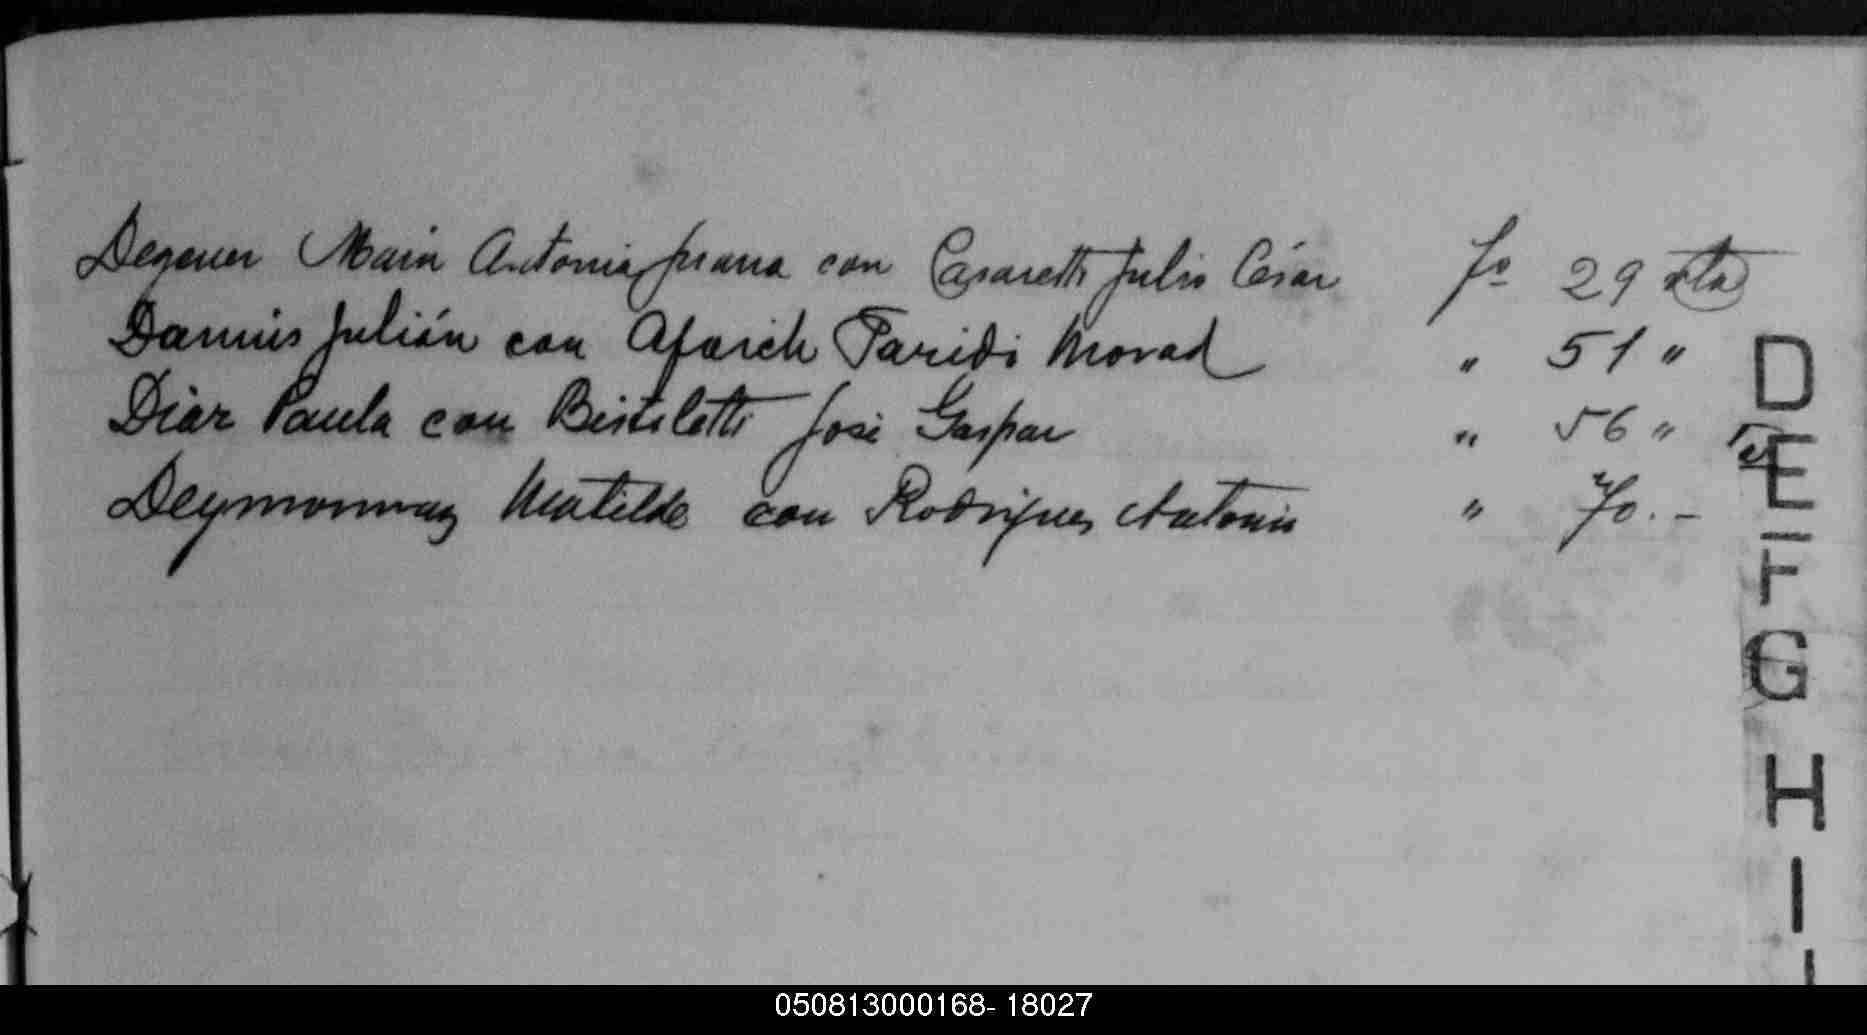 Degener María Antonia Juana con Casaretti Julio César fo 29 vta
Damus Julián con Afarich Faridi Morad " 51 "
Diaz Paula con Bistoletti José Gaspar " 56 "
Matilde con Rodriguez Antonio " 70. –
D
E
F
G
H
I
050813000168- 18027